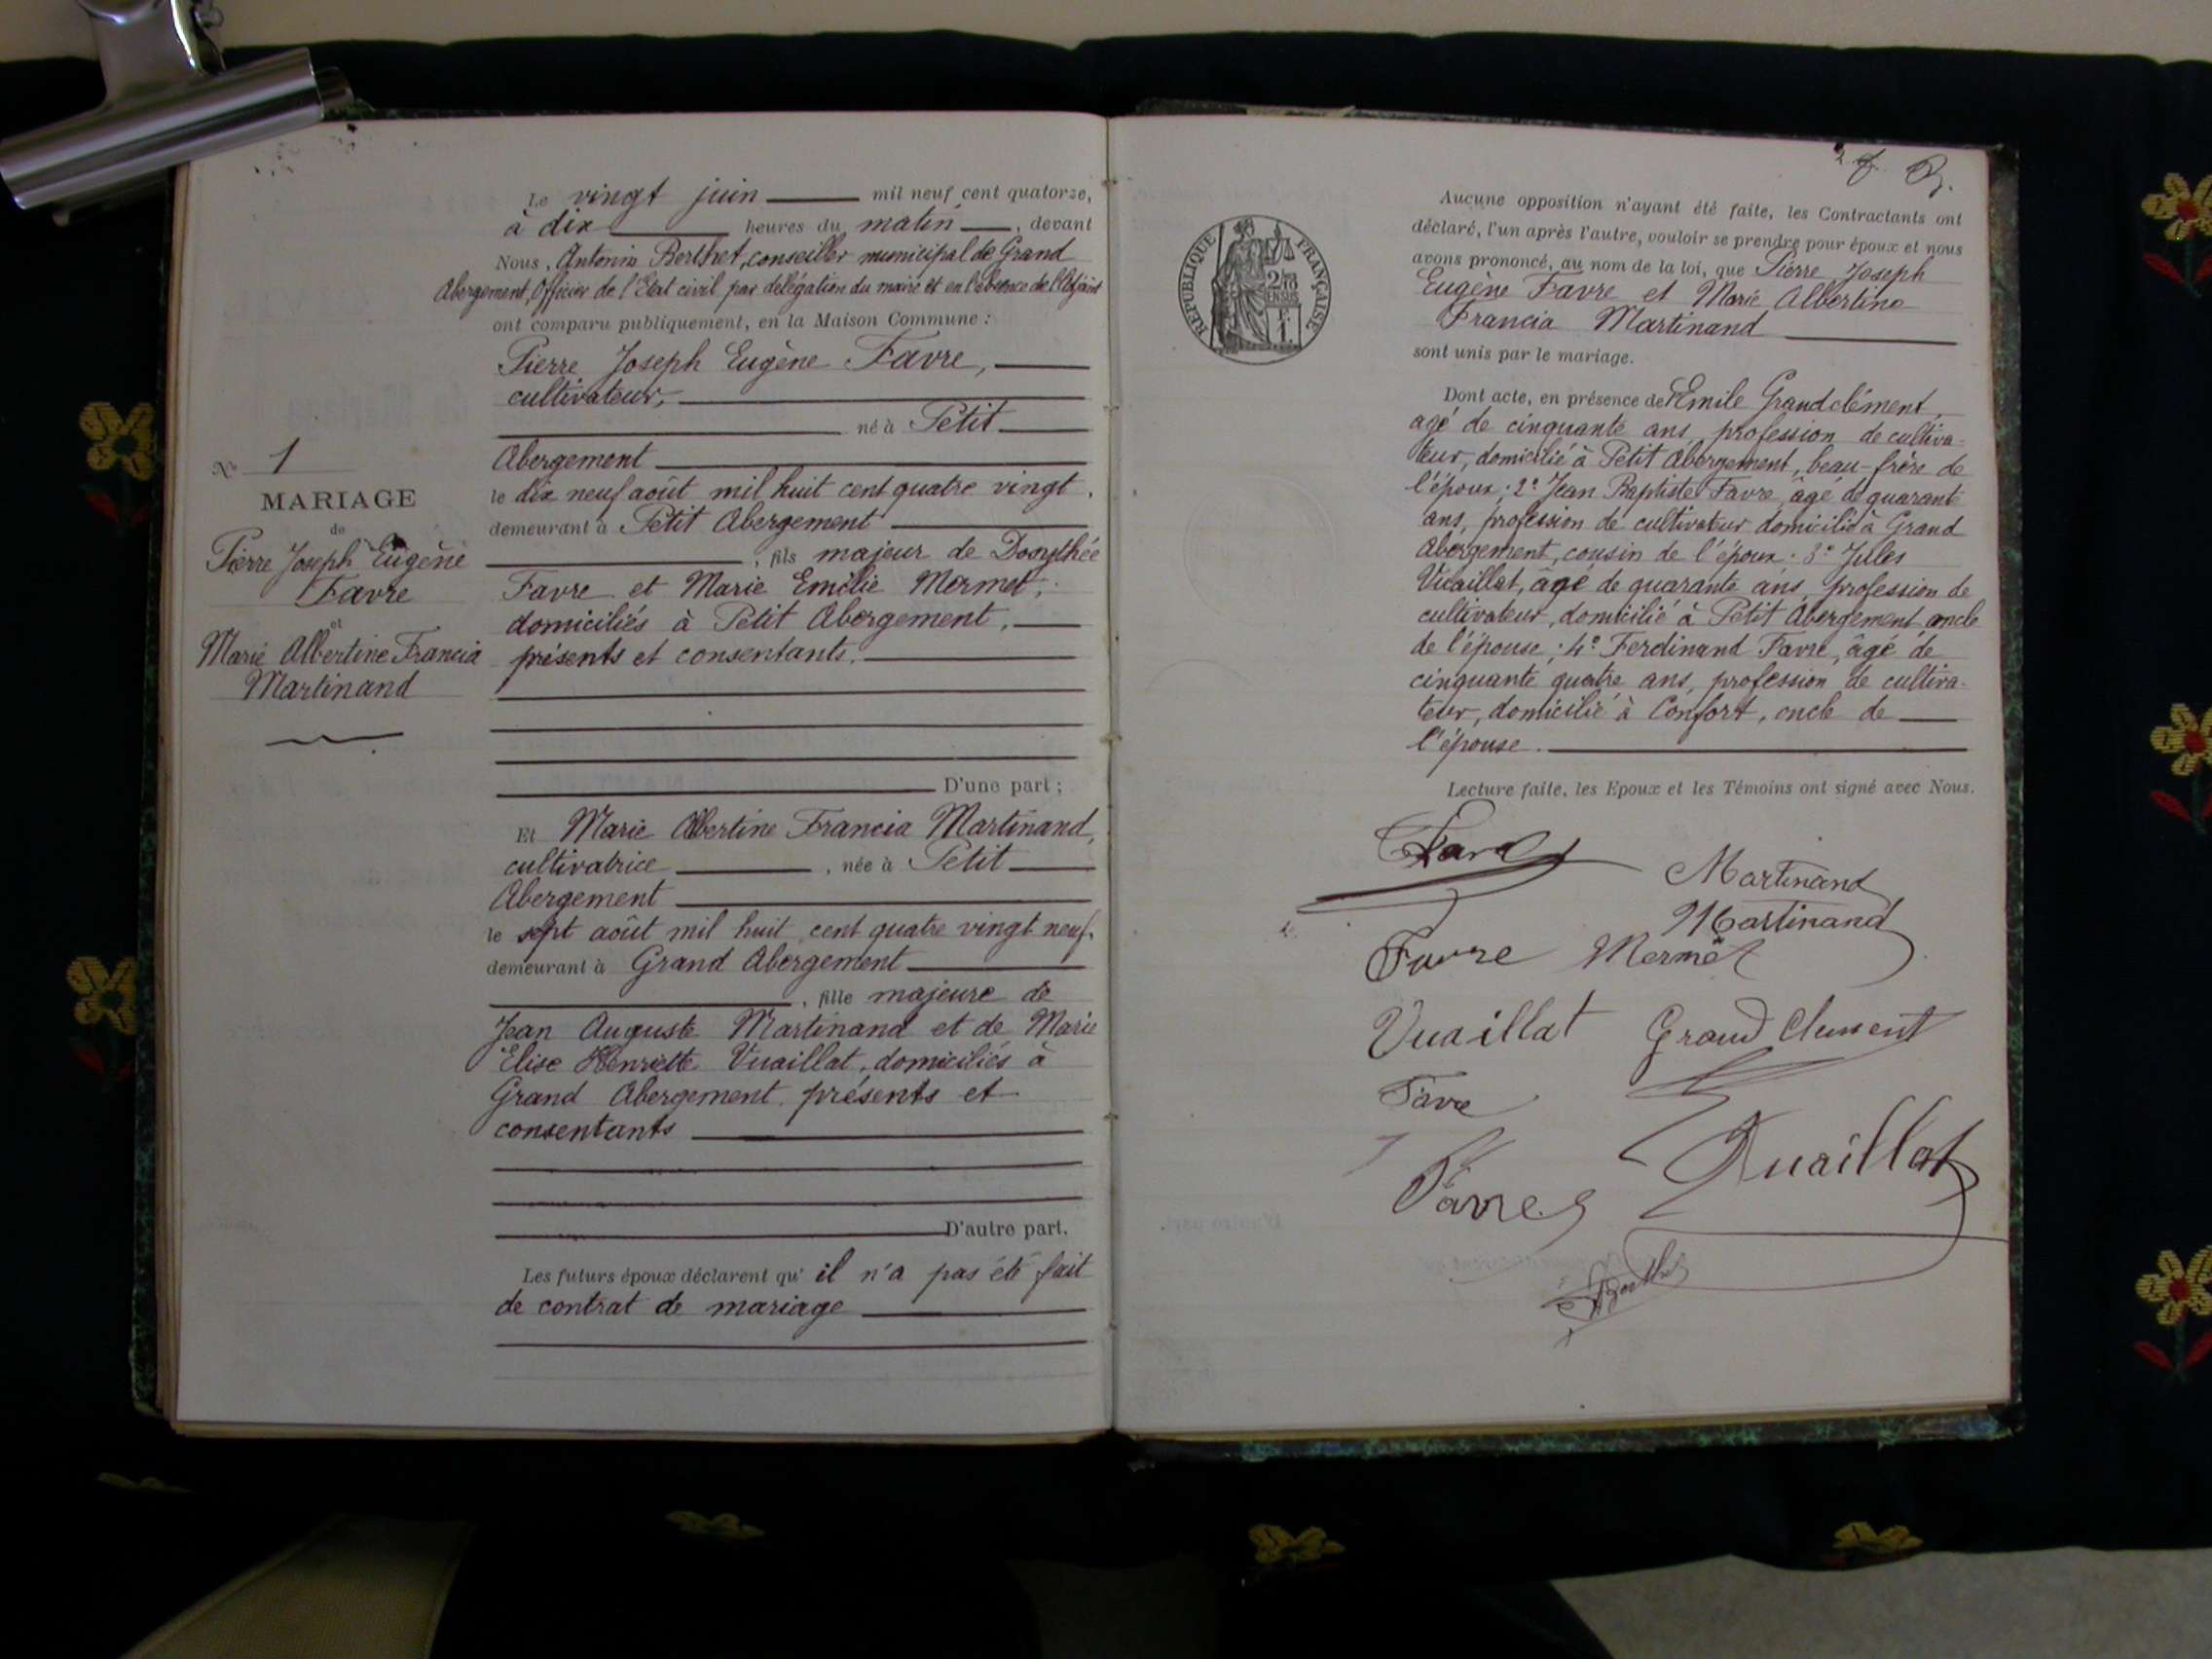 Le vingt juin mil neuf cent quatorze,
à dix heures du matin, devant
Nous, Antonin Berthet, conseiller municipal de Grand
Abergement, Officier de l'Etat civil par délégation du maire et en l'absence de l'Adjoint
ont comparu publiquement, en la Maison Commune :
Pierre Joseph Eugène Favre,
cultivateur,
né à Petit
Abergement
le dix neuf août mil huit cent quatre vingt,
demeurant à Petit Abergement
, fils majeur de Dosythée
Favre et Marie Emélie Mermet,
domiciliés à Petit Abergement,
présents et consentants.
D'une part ;
Et Marie Albertine Francia Martinand,
cultivatrice, née à Petit
Abergement
le sept août mil huit cent quatre vingt neuf,
demeurant à Grand Abergement
, fille majeure de
Jean Auguste Martinand et de Marie
Elise Henriette Vuaillat, domiciliés à
Grand Abergement présents et
consentants
D'autre part.
Les futurs époux déclarent qu'il n'a pas été fait
de contrat de mariage
No 1
MARIAGE
de
Pierre Joseph Eugène
Favre
et
Marie Albertine Francia
Martinand
2
RÉPUBLIQUE FRANÇAISE
Aucune opposition n'ayant été faite, les Contractants ont
déclaré, l'un après l'autre, vouloir se prendre pour époux et nous
avons prononcé, au nom de la loi, que Pierre Joseph
Eugène Favre et Marie Albertine
Francia Martinand
sont unis par le mariage.
Dont acte, en présence de Emile Grandclément,
agé de cinquante ans, profession de cultiva-
teur, domicilié à Petit Abergement, beau-frère de
l'époux ; 2° Jean Baptiste Favre, âgé de quarant
ans, profession de cultivateur domicilié à Grand
Abergement, cousin de l'époux. 3° Jules
Vuaillat, âgé de quarante ans, profession de
cultivateur, domicilié à Petit Abergement oncle
de l'épouse ; 4° Ferdinand Favre, âgé de
cinquante quatre ans, profession de cultiva-
teur, domicilié à Confort, oncle de
l'épouse.
Lecture faite, les Epoux et les Témoins ont signé avec Nous.
Favre
Martinand
Martinand
Favre Mermet
Vuaillat Grand Clement
Favre
Vuaillat
Favre
Berthet